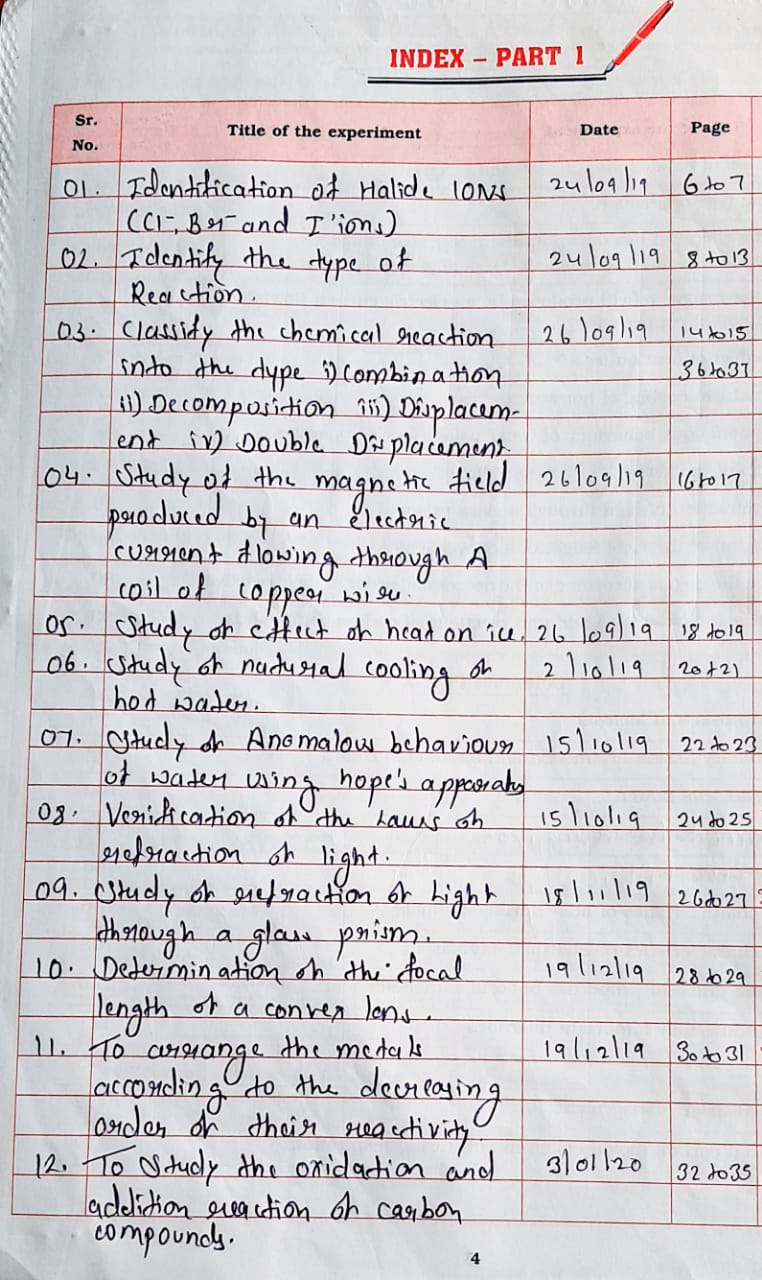 INDEX – PART 1
Sr. No. Title of the experiment Date Page
01. Identification of Halide IONs 24/09/19 6 to 7
(Cl-, Br- and I'ions)
02. Identify the type of 24/09/19 8 to 13
Reaction.
03. Classify the chemical reaction 26/09/19 14 to 15
into the type i) combination 36 to 37
ii) Decomposition iii) Displacem-
ent iv) Double Displacement
04. Study of the magnetic field 26/09/19 16 to 17
produced by an electric
current flowing through A
coil of copper wire.
05. Study of effect of heat on ice. 26/09/19 18 to 19
06. Study of natural cooling of 2/10/19 20 t 21
hot water.
07. Study of Anomalous behaviour 15/10/19 22 to 23
of water using hope's apparatus
08. Verification of the Laws of 15/10/19 24 to 25
refraction of light.
09. Study of refraction of Light 18/11/19 26 to 27
through a glass prism.
10. Determination of the focal 19/12/19 28 to 29
length of a convex lens.
11. To arrange the metals 19/12/19 30 to 31
according to the decreasing
order of their reactivity.
12. To Study the oxidation and 3/01/20 32 to 35
addition reaction of carbon
compounds.
4